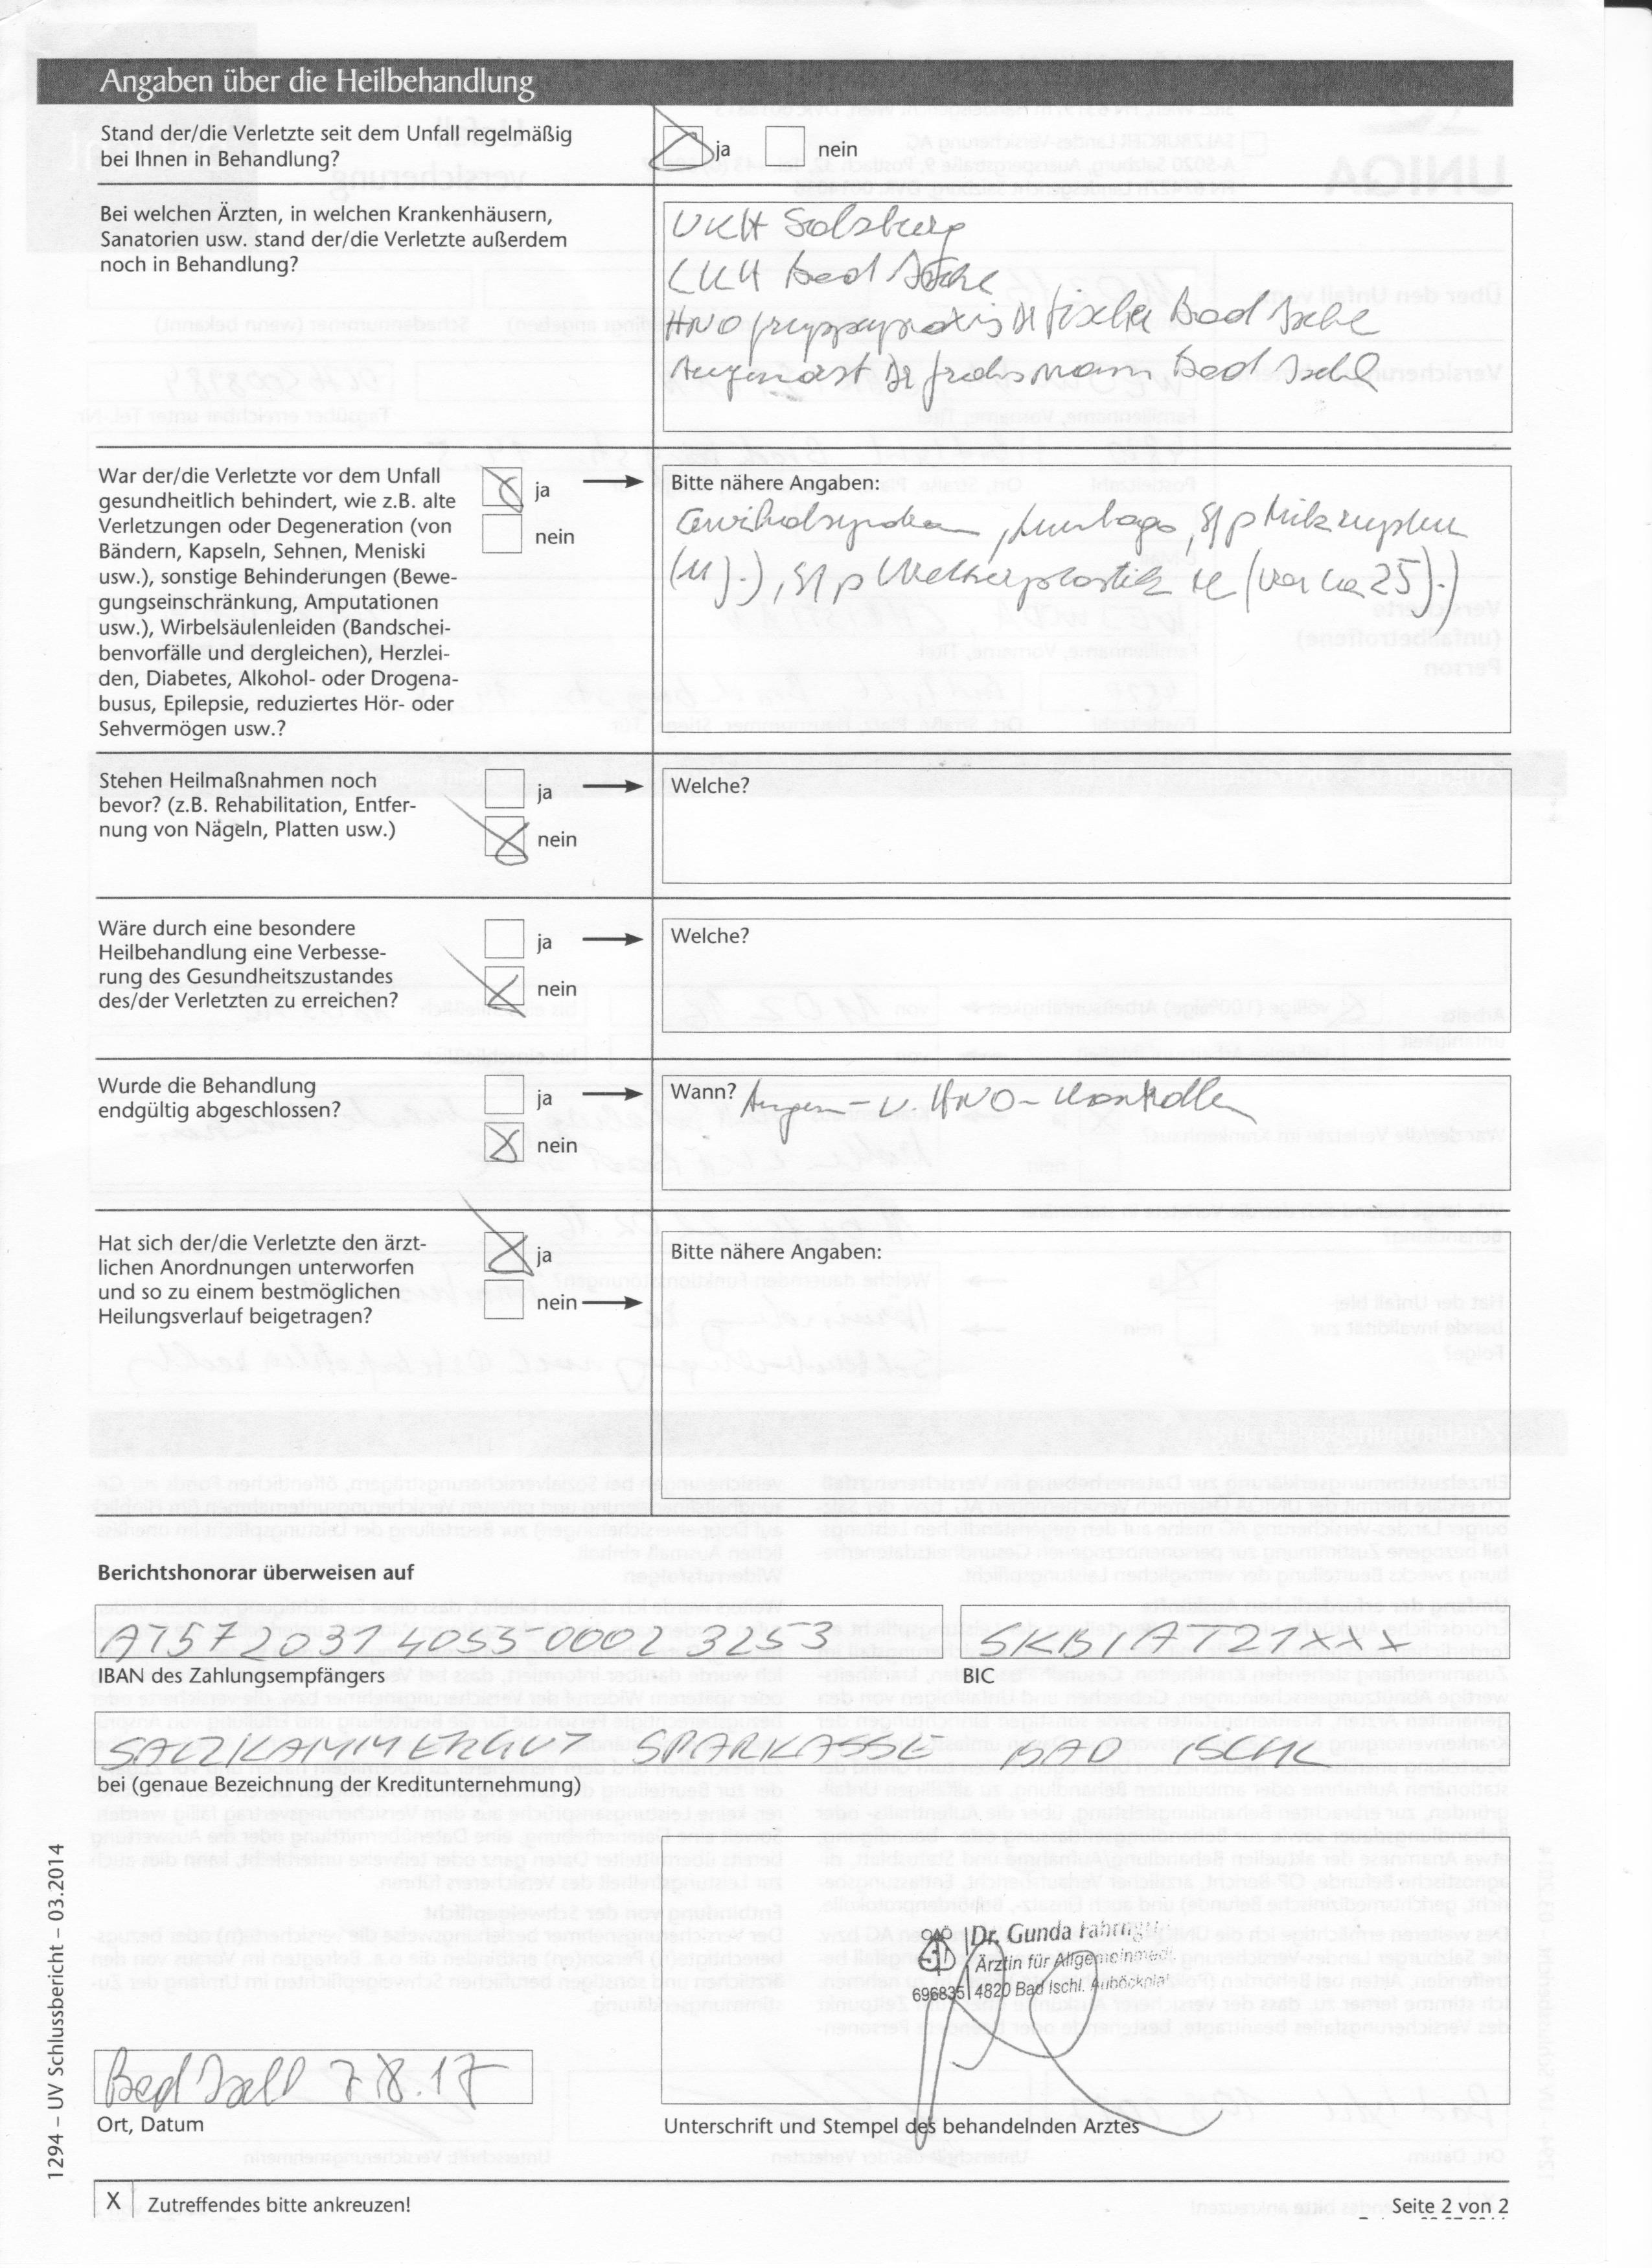 Angaben über die Heilbehandlung
Stand der/die Verletzte seit dem Unfall regelmäßig
bei Ihnen in Behandlung?
ja
nein
Bei welchen Ärzten, in welchen Krankenhäusern,
Sanatorien usw. stand der/die Verletzte außerdem
noch in Behandlung?
UKH Salzburg
LKH Bad Ischl
HNO Gruppenpraxis Dr Fischer Bad Ischl
Augenarzt Dr Bad Ischl
War der/die Verletzte vor dem Unfall
gesundheitlich behindert, wie z.B. alte
Verletzungen oder Degeneration (von
Bändern, Kapseln, Sehnen, Meniski
usw.), sonstige Behinderungen (Bewe-
gungseinschränkung, Amputationen
usw.), Wirbelsäulenleiden (Bandschei-
benvorfälle und dergleichen), Herzlei-
den, Diabetes, Alkohol- oder Drogena-
busus, Epilepsie, reduziertes Hör- oder
Sehvermögen usw.?
ja
nein
Bitte nähere Angaben:
Cervikalsyndrom, Lumbago, St p Milzruptur
(11 J.), St p re (vor ca 25 J.)
Stehen Heilmaßnahmen noch
bevor? (z.B. Rehabilitation, Entfer-
nung von Nägeln, Platten usw.)
ja
nein
Welche?
Wäre durch eine besondere
Heilbehandlung eine Verbesse-
rung des Gesundheitszustandes
des/der Verletzten zu erreichen?
ja
nein
Welche?
Wurde die Behandlung
endgültig abgeschlossen?
ja
nein
Wann? Augen- u. HNO-Kontrollen
Hat sich der/die Verletzte den ärzt-
lichen Anordnungen unterworfen
und so zu einem bestmöglichen
Heilungsverlauf beigetragen?
ja
nein
Bitte nähere Angaben:
Berichtshonorar überweisen auf
AT57 2031 4053 0002 3253
SKBIAT21XXX
IBAN des Zahlungsempfängers
BIC
SALZKAMMERGUT SPARKASSE BAD ISCHL
bei (genaue Bezeichnung der Kreditunternehmung)
Dr. Gunda
Ärztin für Allgemeinmedi.
696835 4820 Bad Ischl, Auböckplat
Bad Ischl 7.8.17
Ort, Datum
Unterschrift und Stempel des behandelnden Arztes
1294 – UV Schlussbericht – 03.2014
X Zutreffendes bitte ankreuzen!
Seite 2 von 2